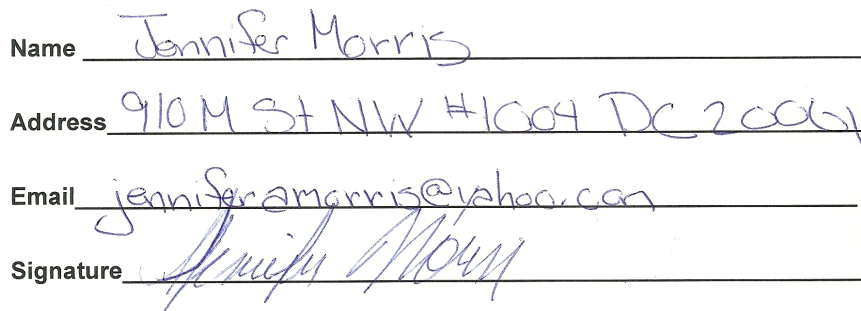 Name Jennifer Morris
Address 910 M St NW #1004 DC 20001
Email jenniferamorris@yahoo.com
Signature Jennifer Morris